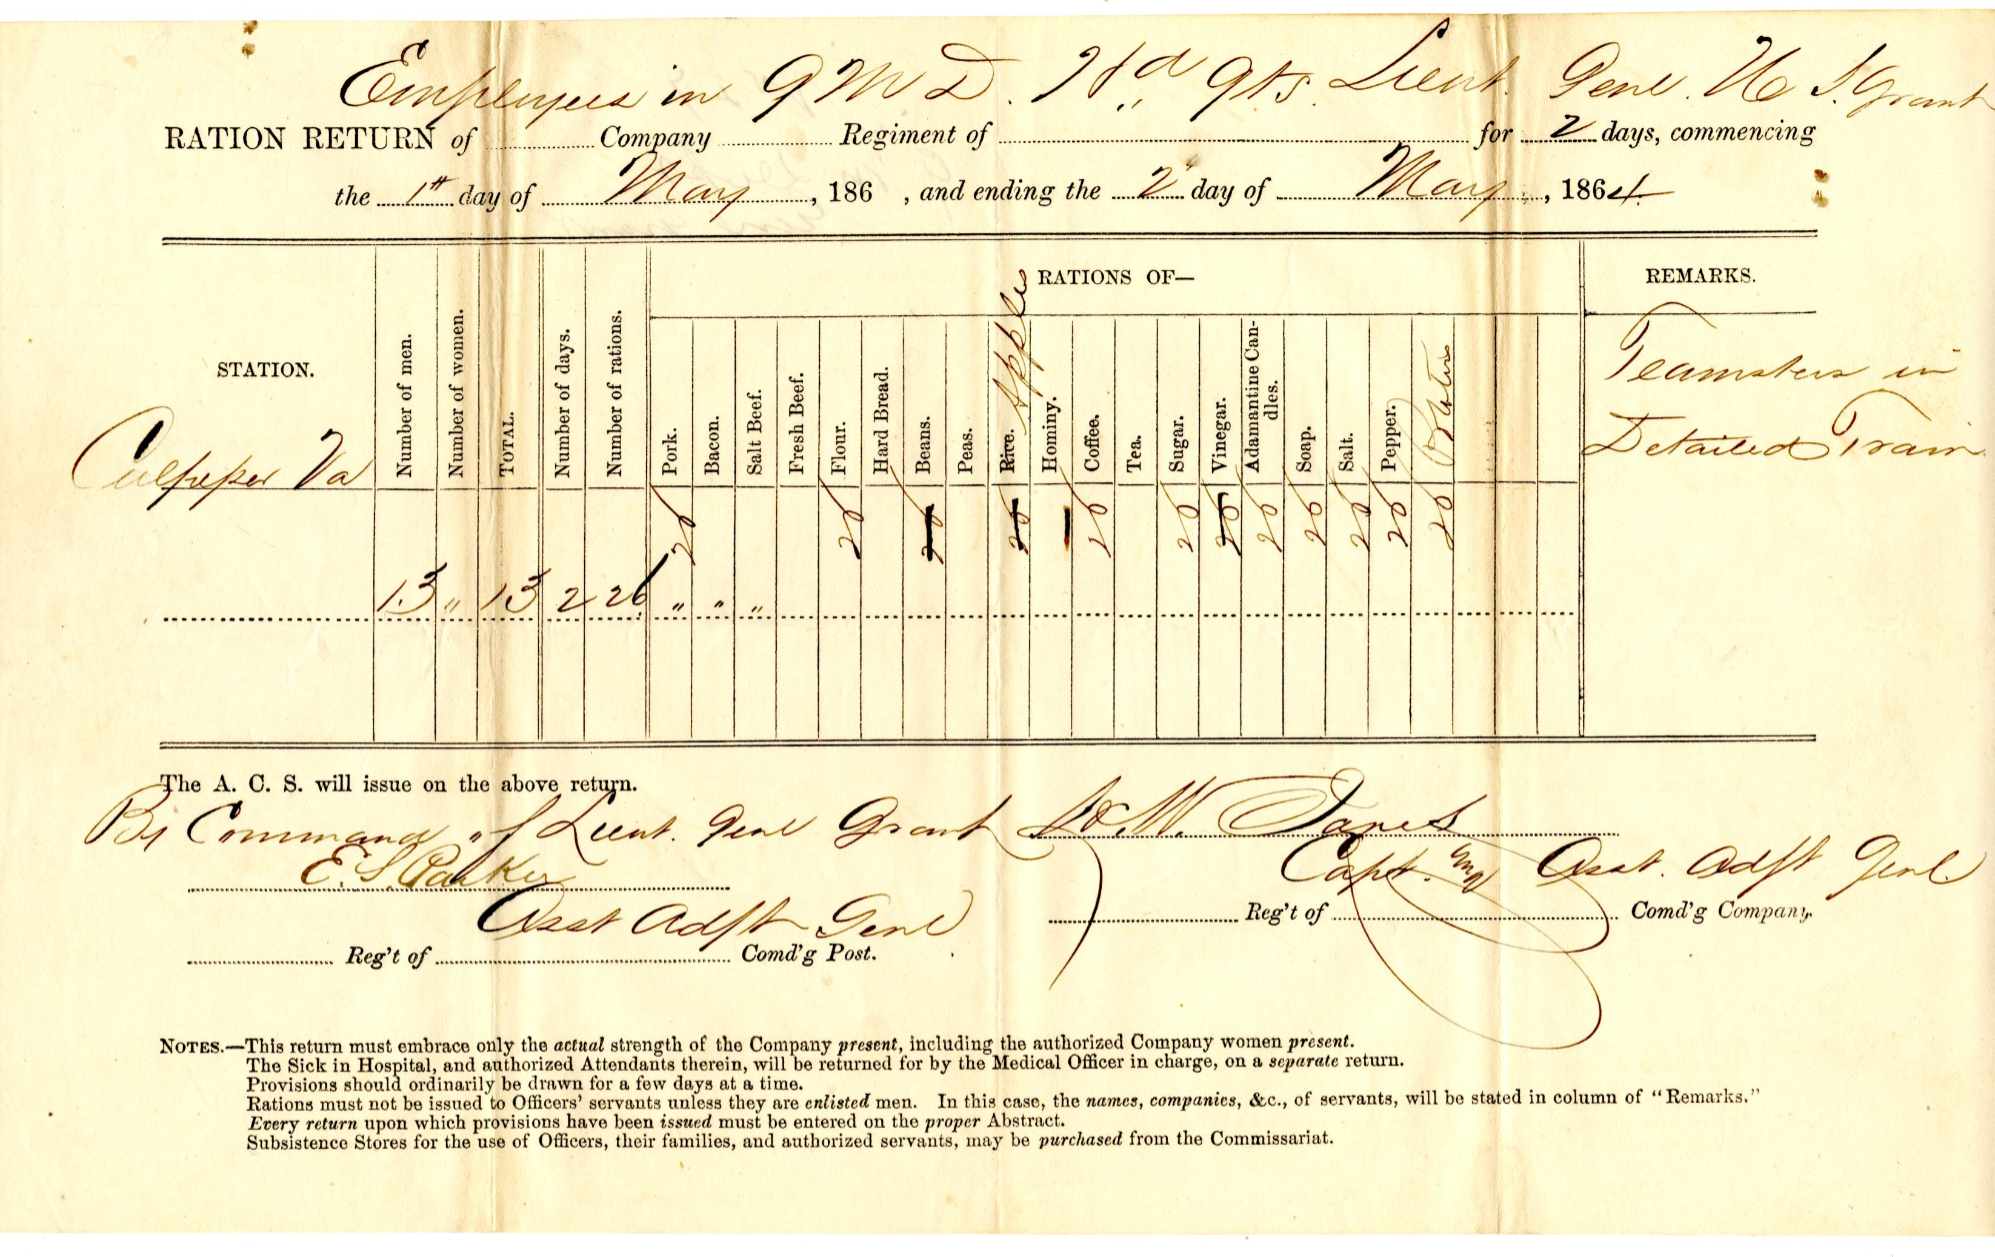 Employees in QMD. Hd Qts. Lieut. Genl. U S. Grant
RATION RETURN of Company Regiment of for 2 days, commencing
the 1st day of May, 186 , and ending the 2d day of May, 1864
RATIONS OF— REMARKS.
STATION. Number of men. Number of women. TOTAL. Number of days. Number of rations. Pork. Bacon. Salt Beef. Fresh Beef. Flour. Hard Bread. Beans. Peas. Rice. Apples Hominy. Coffee. Tea. Sugar. Vinegar. Adamantine Candles. Soap. Salt. Pepper.
Teamsters in
Detailed Train
Culpeper Va
13 " 13 2 26 " " "
The A. C. S. will issue on the above return.
By Command of Lieut. Genl Grant
E. S. Parker
Asst Adjt Genl
Reg't of Comd'g Post.
W. Janes
Capt. and Asst. Adjt Genl.
Reg't of Comd'g Company.
NOTES.—This return must embrace only the actual strength of the Company present, including the authorized Company women present.
The Sick in Hospital, and authorized Attendants therein, will be returned for by the Medical Officer in charge, on a separate return.
Provisions should ordinarily be drawn for a few days at a time.
Rations must not be issued to Officers' servants unless they are enlisted men. In this case, the names, companies, &c., of servants, will be stated in column of "Remarks."
Every return upon which provisions have been issued must be entered on the proper Abstract.
Subsistence Stores for the use of Officers, their families, and authorized servants, may be purchased from the Commissariat.